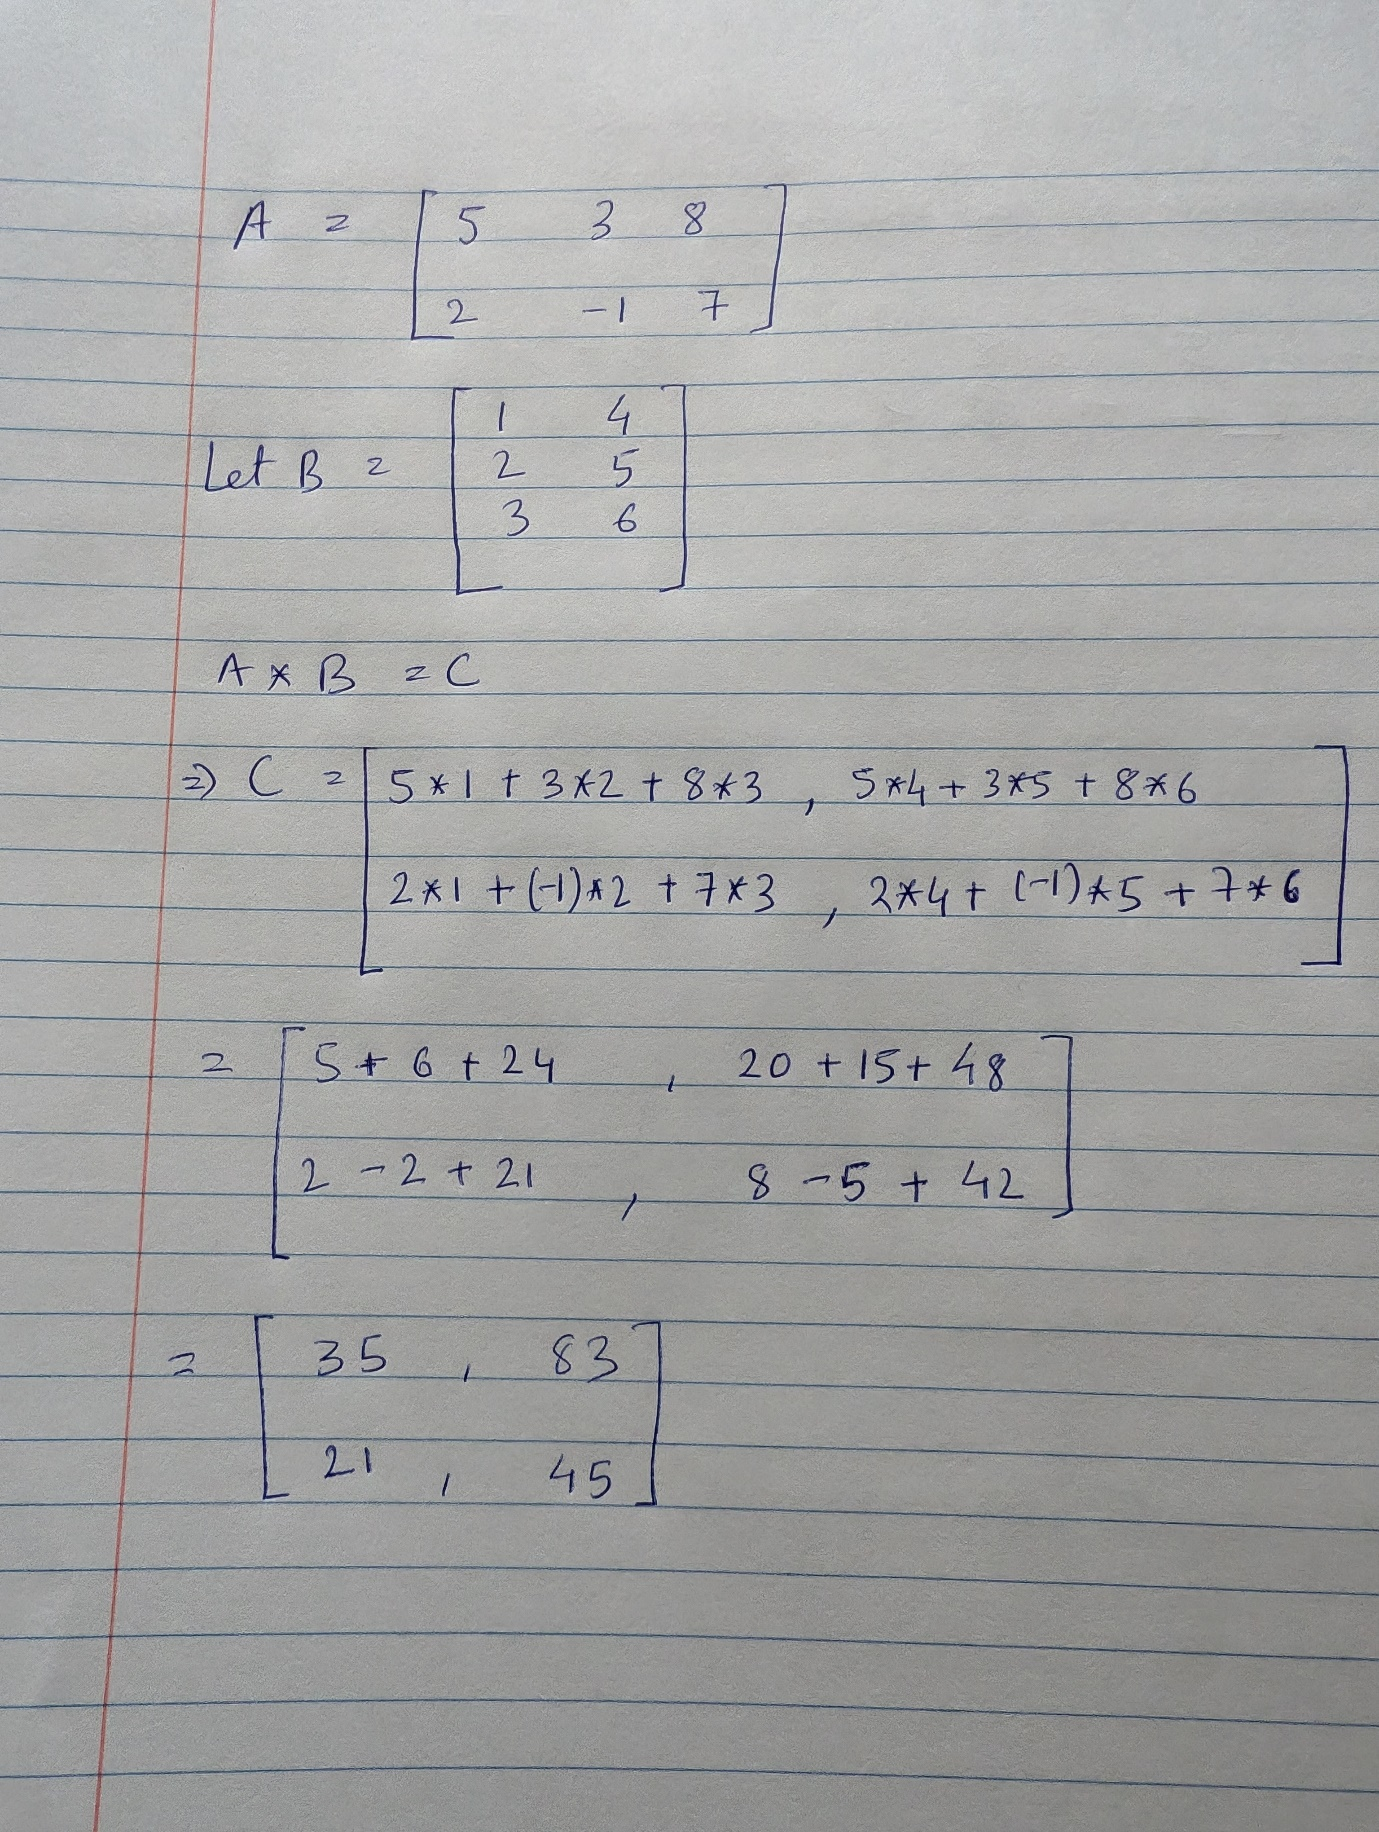 A = [ 5 3 8
2 -1 7 ]
Let B = [ 1 4
2 5
3 6 ]
A * B = C
⇒ C = [ 5*1 + 3*2 + 8*3 , 5*4 + 3*5 + 8*6
2*1 + (-1)*2 + 7*3 , 2*4 + (-1)*5 + 7*6 ]
= [ 5 + 6 + 24 , 20 + 15 + 48
2 - 2 + 21 , 8 - 5 + 42 ]
= [ 35 , 83
21 , 45 ]